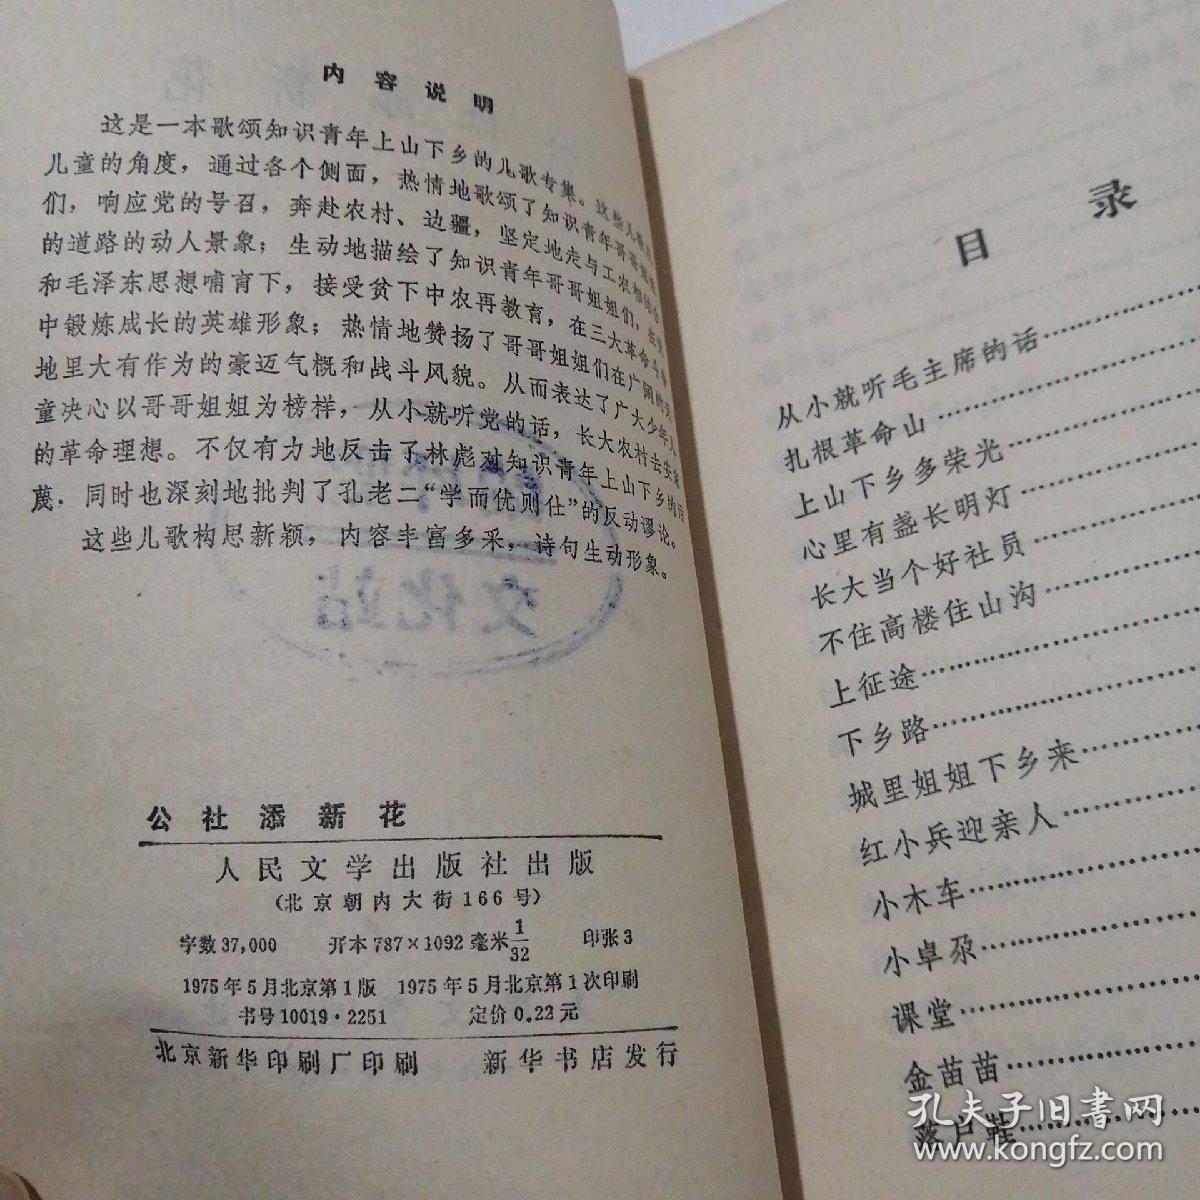 内容说明
这是一本歌颂知识青年上山下乡的儿歌专集。这些儿歌
儿童的角度，通过各个侧面，热情地歌颂了知识青年哥哥
们，响应党的号召，奔赴农村、边疆，坚定地走与工农相结合
的道路的动人景象；生动地描绘了知识青年哥哥姐姐们，在
和毛泽东思想哺育下，接受贫下中农再教育，在三大革命斗争
中锻炼成长的英雄形象；热情地赞扬了哥哥姐姐们在广阔的天
地里大有作为的豪迈气概和战斗风貌。从而表达了广大少年儿
童决心以哥哥姐姐为榜样，从小就听党的话，长大农村去安家
的革命理想。不仅有力地反击了林彪对知识青年上山下乡的污
蔑．同时也深刻地批判了孔老二“学而优则仕”的反动谬论。
这些儿歌构思新颖，内容丰富多采，诗句生动形象。
文化站
公社添新花
人民文学出版社出版
(北京朝内大街166号)
字数37,000 开本787×1092毫米1/32 印张3
1975年5月北京第1版 1975年5月北京第1次印刷
书号10019·2251 定价0.22元
北京新华印刷厂印刷 新华书店发行
目录
从小就听毛主席的话…………
扎根革命山…………
上山下乡多荣光…………
心里有盏长明灯…………
长大当个好社员…………
不住高楼住山沟…………
上征途…………
下乡路…………
城里姐姐下乡来…………
红小兵迎亲人…………
小木车…………
小卓朵…………
课堂…………
金苗苗…………
落户鞋…………
孔夫子旧書网
www.kongfz.com